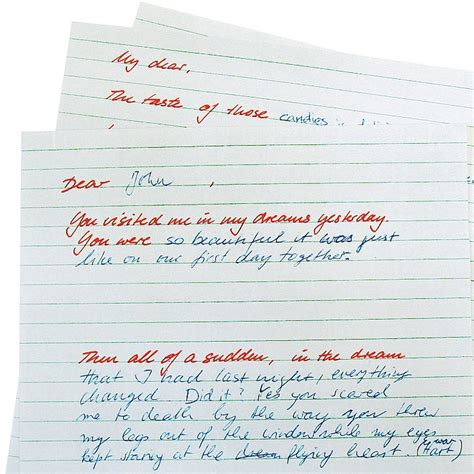 My dear,
The taste of those candies
Dear John,
You visited me in my dreams yesterday.
You were so beautiful it was just
like on our first day together.
Then all of a sudden, in the dream
that I had last night, everything
changed. Did it? Yes you scared
me to death by the way you threw
my legs out of the window while my eyes
kept staring at the flying
(Hart)